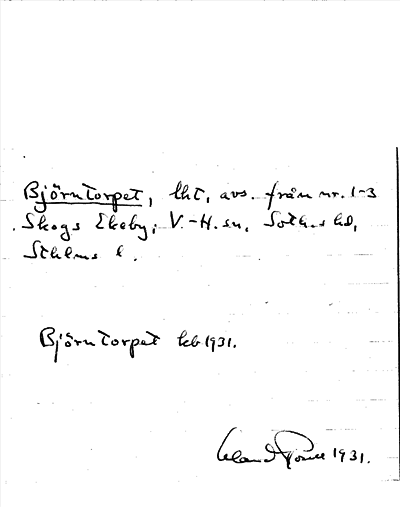 Björntorpet, lht, avs. från nr. 1-3
Skogs Ekeby, V.-H. sn, Soth.s hd,
Sthlms l.
Björntorpet kb 1931.
1931.